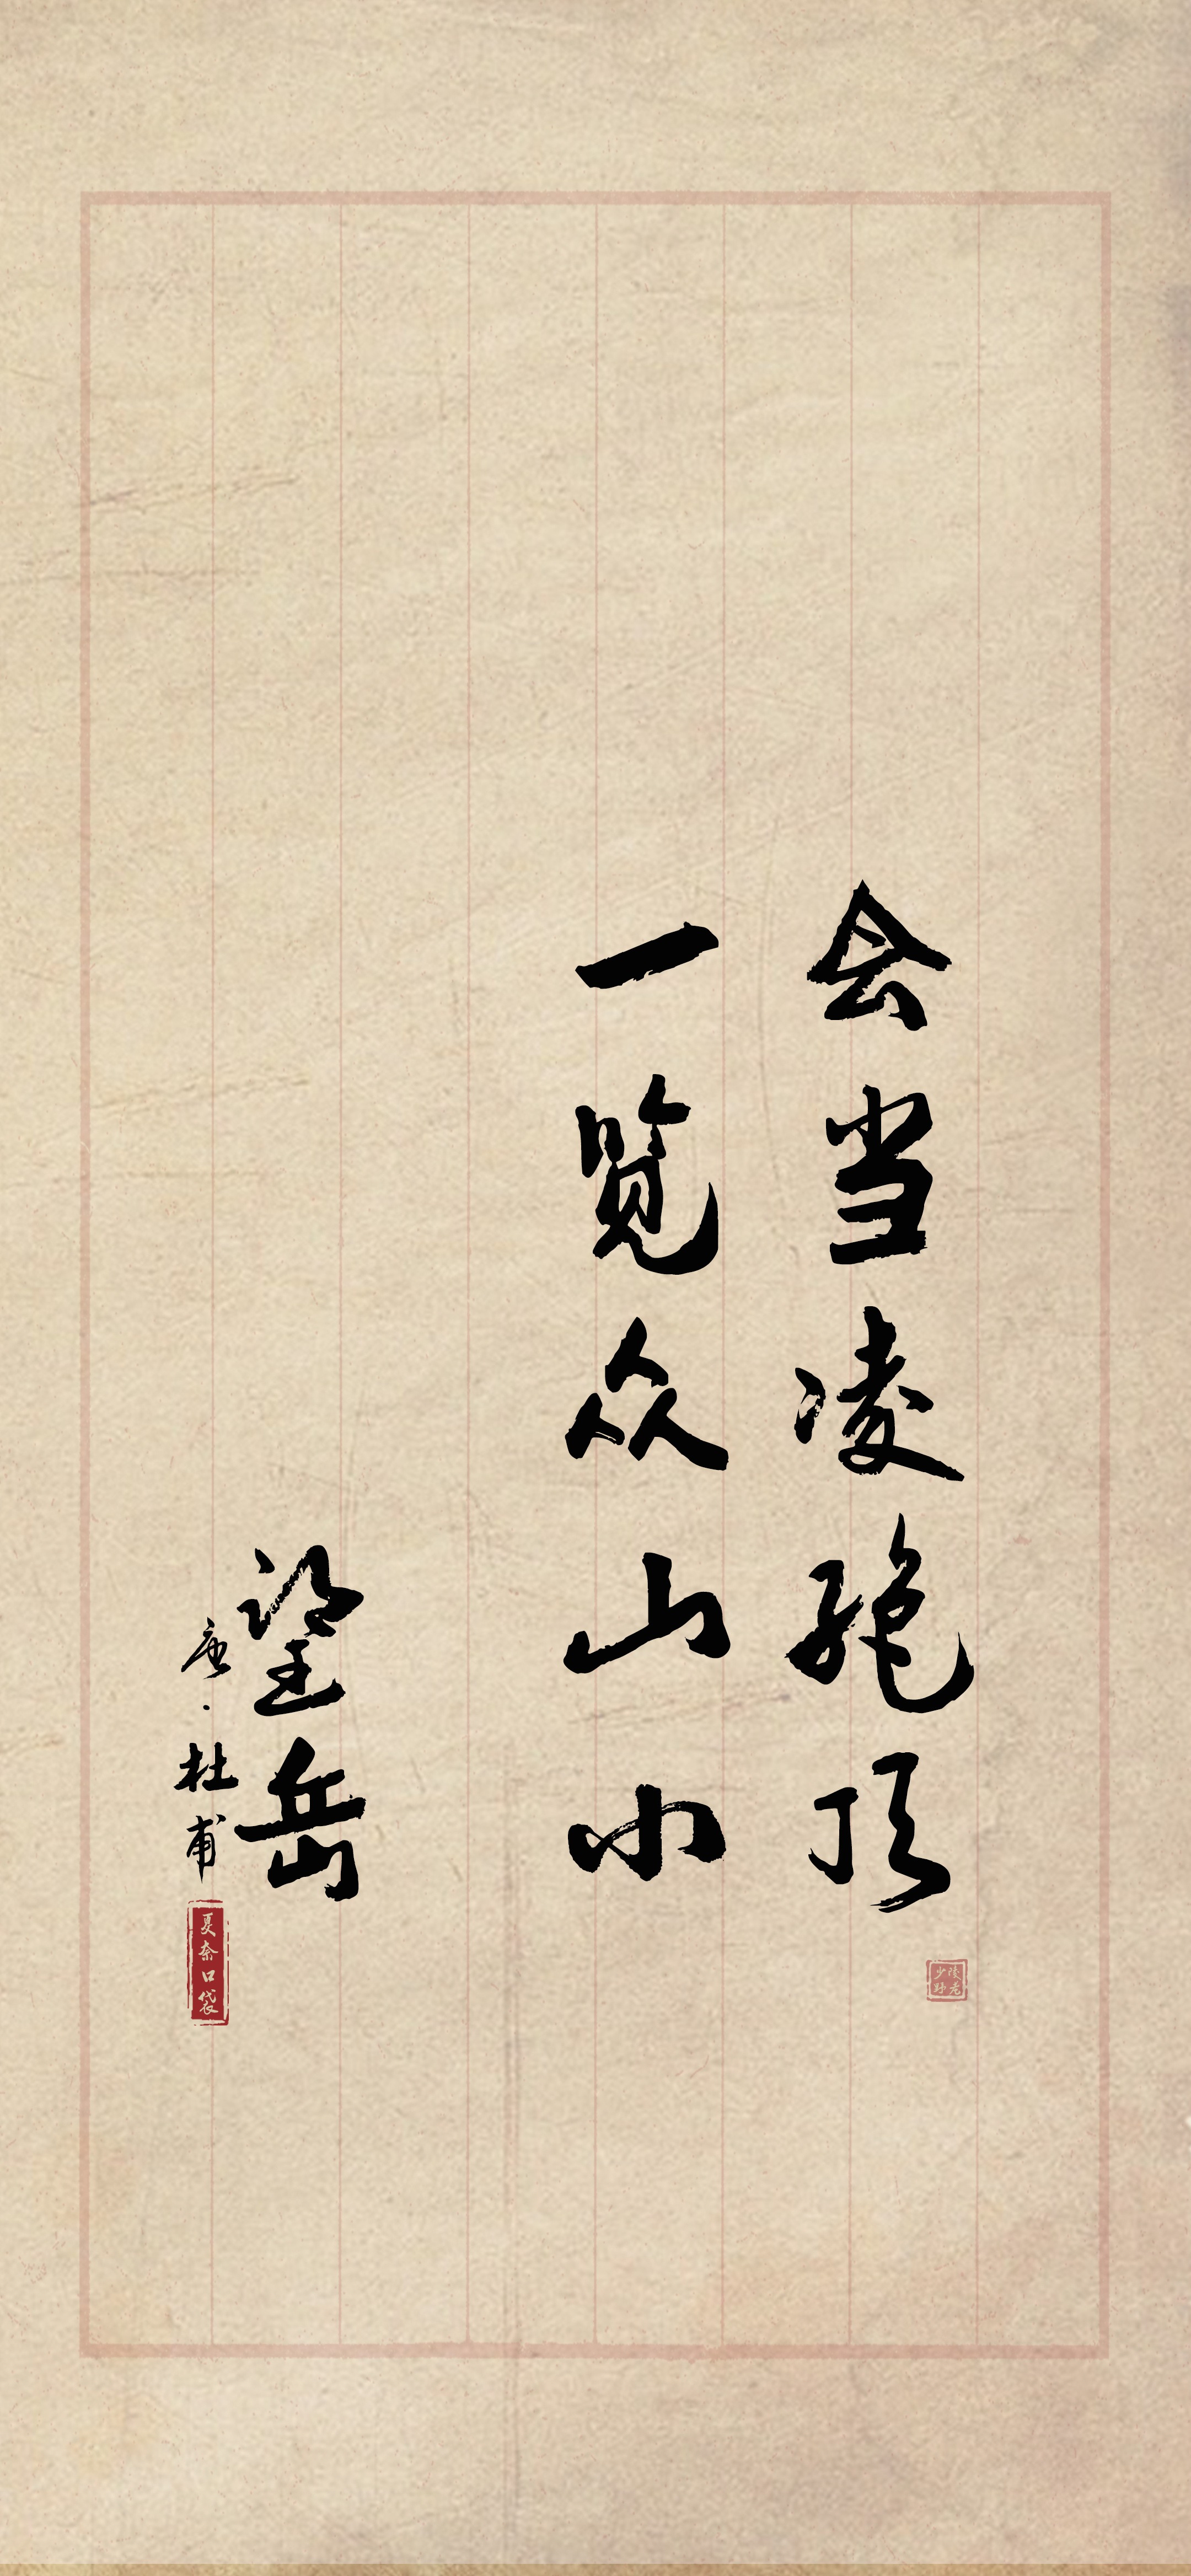 会当凌绝顶
一览众山小
望岳
唐·杜甫
夏奈口袋
少陵野老